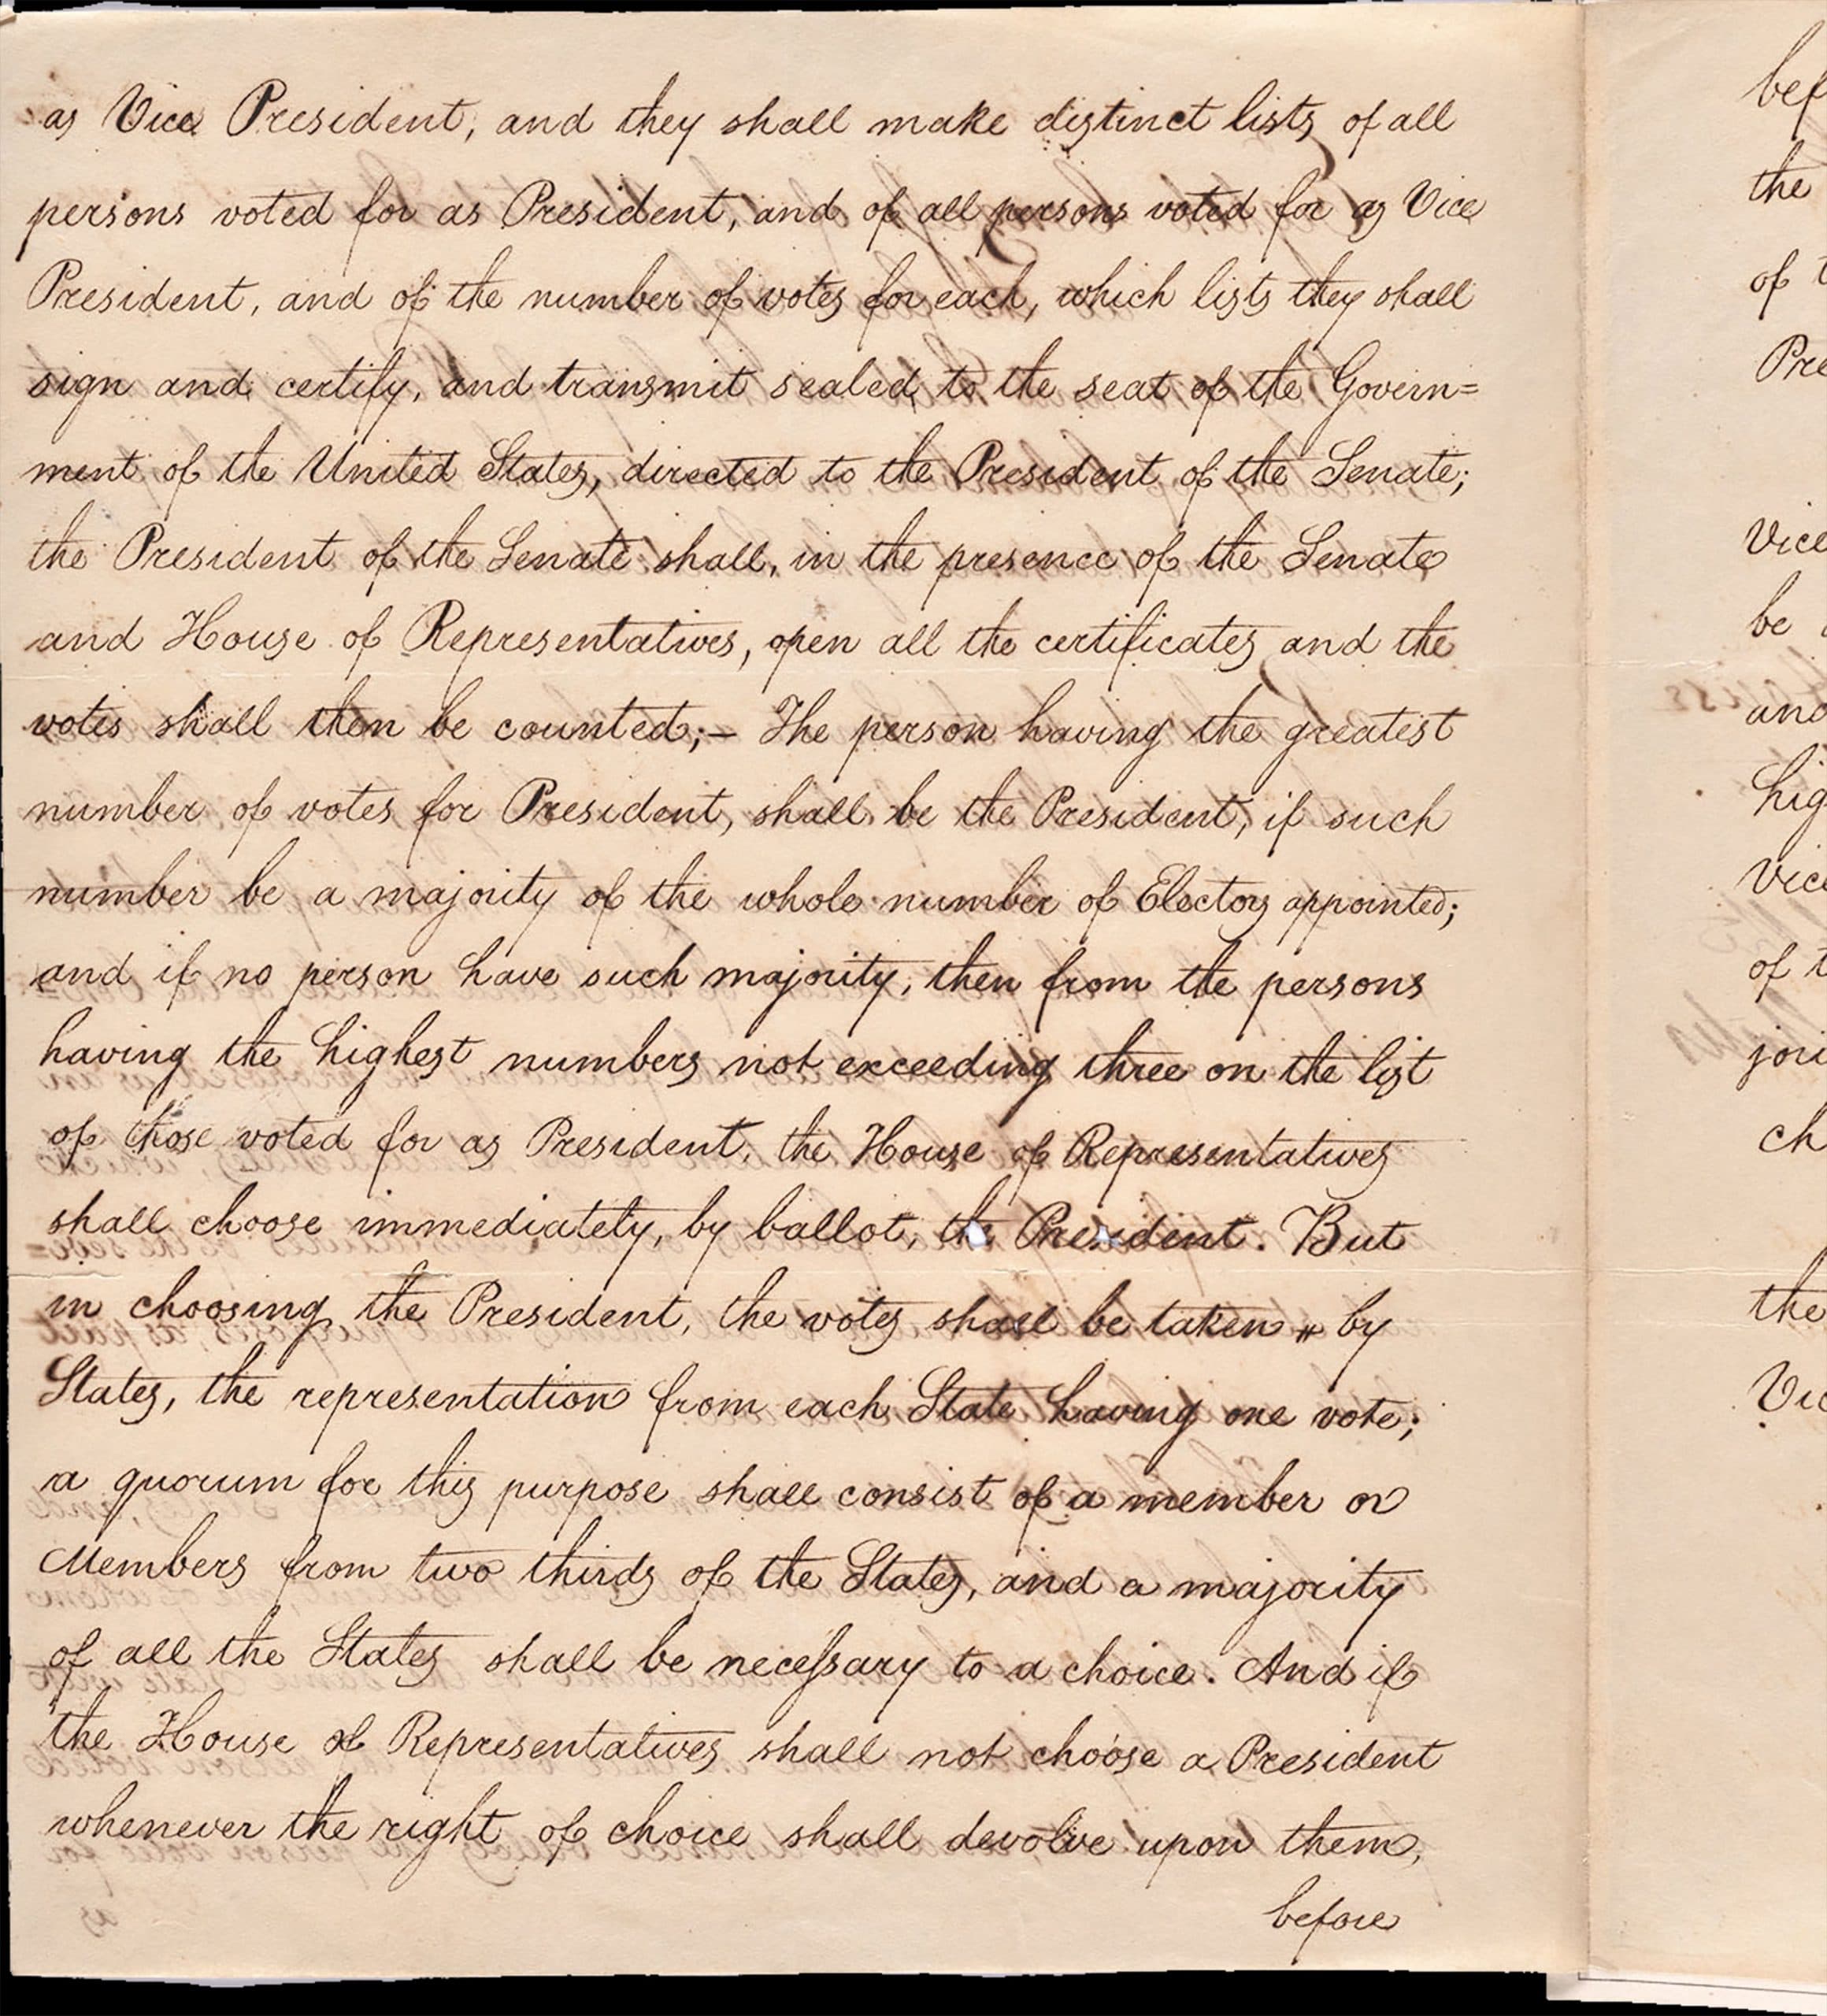 as Vice President, and they shall make distinct lists of all
persons voted for as President, and of all persons voted for as Vice
President, and of the number of votes for each, which lists they shall
sign and certify, and transmit sealed to the seat of the Govern=
ment of the United States, directed to the President of the Senate;
the President of the Senate shall, in the presence of the Senate
and House of Representatives, open all the certificates and the
votes shall then be counted;— The person having the greatest
number of votes for President, shall be the President, if such
number be a majority of the whole number of Electors appointed;
and if no person have such majority, then from the persons
having the highest numbers not exceeding three on the list
of those voted for as President, the House of Representatives
shall choose immediately, by ballot, the President. But
in choosing the President, the votes shall be taken by
States, the representation from each State having one vote;
a quorum for this purpose shall consist of a member or
Members from two thirds of the States, and a majority
of all the States shall be necessary to a choice. And if
the House of Representatives shall not choose a President
whenever the right of choice shall devolve upon them,
before
bef
the
of t
Pre
Vice
be
and
hig
Vice
of t
jori
ch
the
Vic